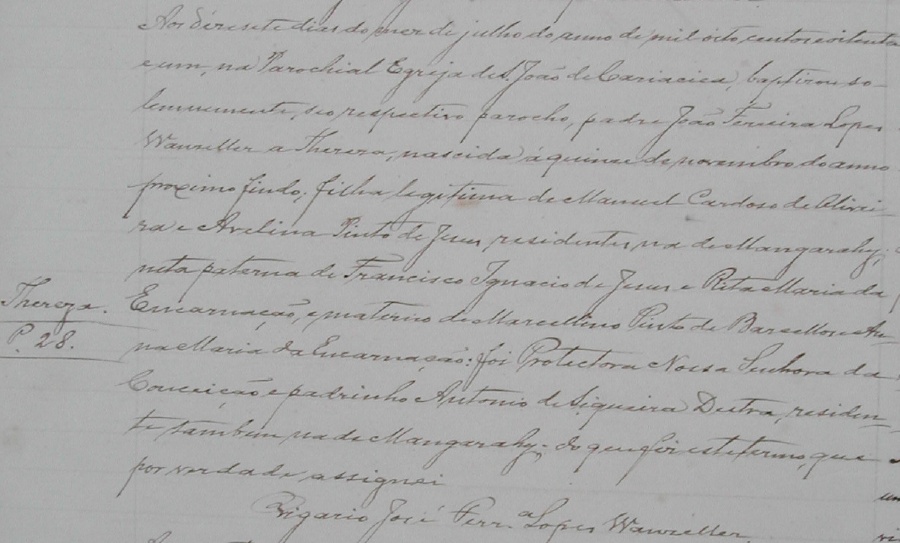 Aos dezesete dias do mez de julho do anno de mil oito centos e oitenta
e um, na Parochial Egreja de S. João de Cariacica, baptizou so-
lemnemente, seo respectivo parocho, padre João Ferreira Lopes
Wanzeller a Thereza, nascida á quinze de novembro do anno
proximo findo; filha legitima de Manuel Cardoso de Olivei-
ra e Avelina Pinto de Jesus, residentes na de Mangarahy;
neta paterna de Francisco Ignacio de Jesus e Rita Maria da
Thereza.
Encarnação, e materno de Marcellino Pinto de Barcellos e An-
P. 28.
na Maria da Encarnação: foi Protectora Nossa Senhora da
Conceição e padrinho Antonio de Siqueira Dutra, residen-
te tambem na de Mangarahy; do que fiz este termo, que
por verdade assignei
Vigario José Ferrª Lopes Wanzeller